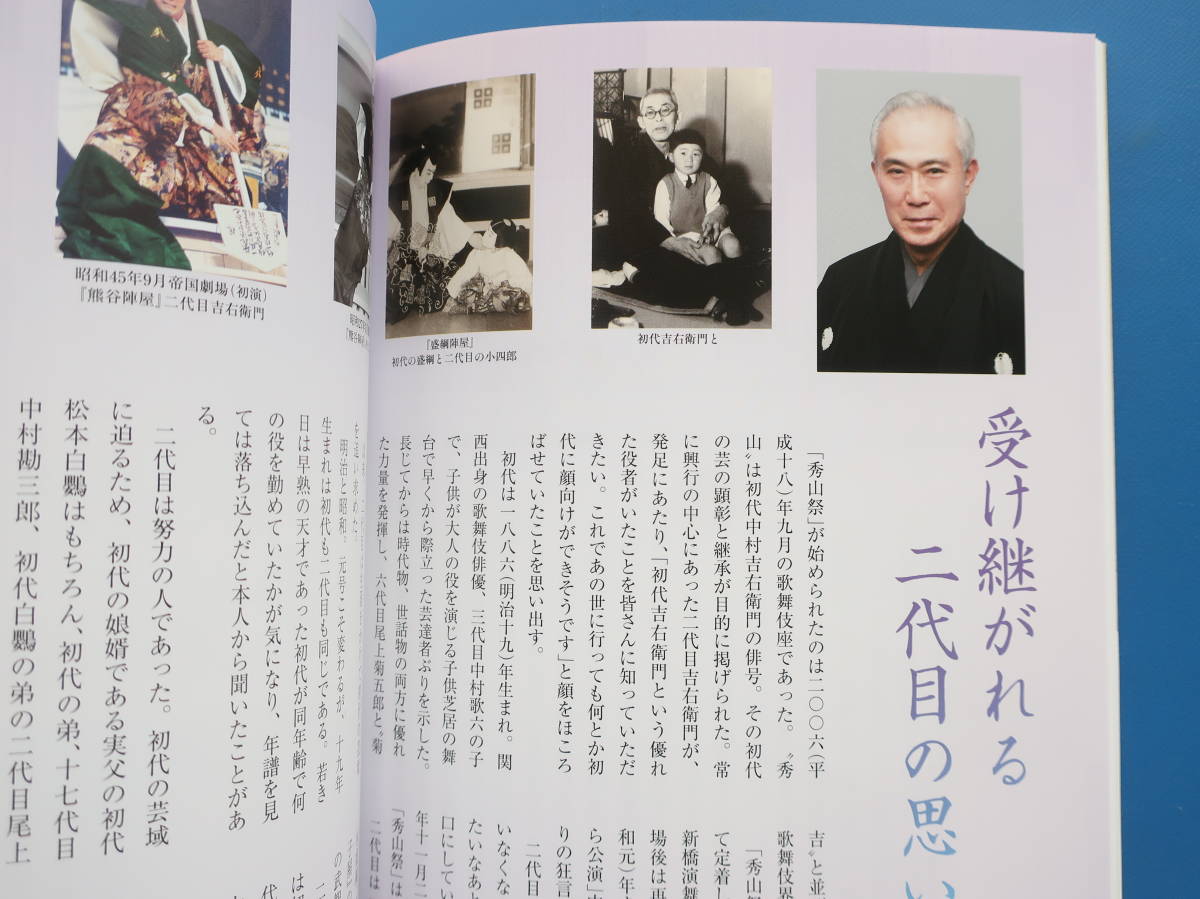 受け継がれる
二代目の思い
初代吉右衛門と
『盛綱陣屋』
初代の盛綱と二代目の小四郎
「秀山祭」が始められたのは二〇〇六（平
成十八）年九月の歌舞伎座であった。〝秀
山〟は初代中村吉右衛門の俳号。その初代
の芸の顕彰と継承が目的に掲げられた。常
に興行の中心にあった二代目吉右衛門が、
発足にあたり、「初代吉右衛門という優れ
た役者がいたことを皆さんに知っていただ
きたい。これであの世に行っても何とか初
代に顔向けができそうです」と顔をほころ
ばせていたことを思い出す。
初代は一八八六（明治十九）年生まれ。関
西出身の歌舞伎俳優、三代目中村歌六の子
で、子供が大人の役を演じる子供芝居の舞
台で早くから際立った芸達者ぶりを示した。
長じてからは時代物、世話物の両方に優れ
た力量を発揮し、六代目尾上菊五郎と〝菊
吉〟と並
歌舞伎界
「秀山祭
て定着し
新橋演舞
場後は再
和元）年
ら公演」
りの狂言
二代目
いなくな
たいなあと
口にしてい
年十一月二
「秀山祭」は
二代目は
昭和45年9月帝国劇場（初演）
『熊谷陣屋』二代目吉右衛門
を追い求めた。
明治と昭和。元号こそ変わるが、十九年
生まれは初代も二代目も同じである。若き
日は早熟の天才であった初代が同年齢で何
の役を勤めていたかが気になり、年譜を見
ては落ち込んだと本人から聞いたことがあ
る。
二代目は努力の人であった。初代の芸域
に迫るため、初代の娘婿である実父の初代
松本白鸚はもちろん、初代の弟、十七代目
中村勘三郎、初代白鸚の弟の二代目尾上